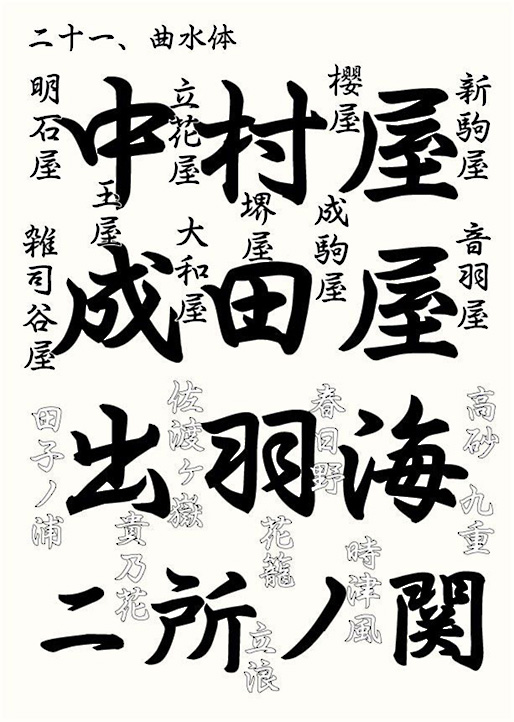 二十一、曲水体
中村屋
成田屋
出羽海
二所ノ関
明石屋
立花屋
櫻屋
新駒屋
玉屋
堺屋
成駒屋
雑司谷屋
大和屋
音羽屋
田子ノ浦
佐渡ヶ嶽
春日野
高砂
九重
貴乃花
花籠
時津風
立浪